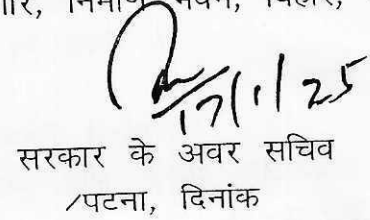 निर्माण भवन, बिहार,
17/1/25
सरकार के अवर सचिव
/पटना, दिनांक